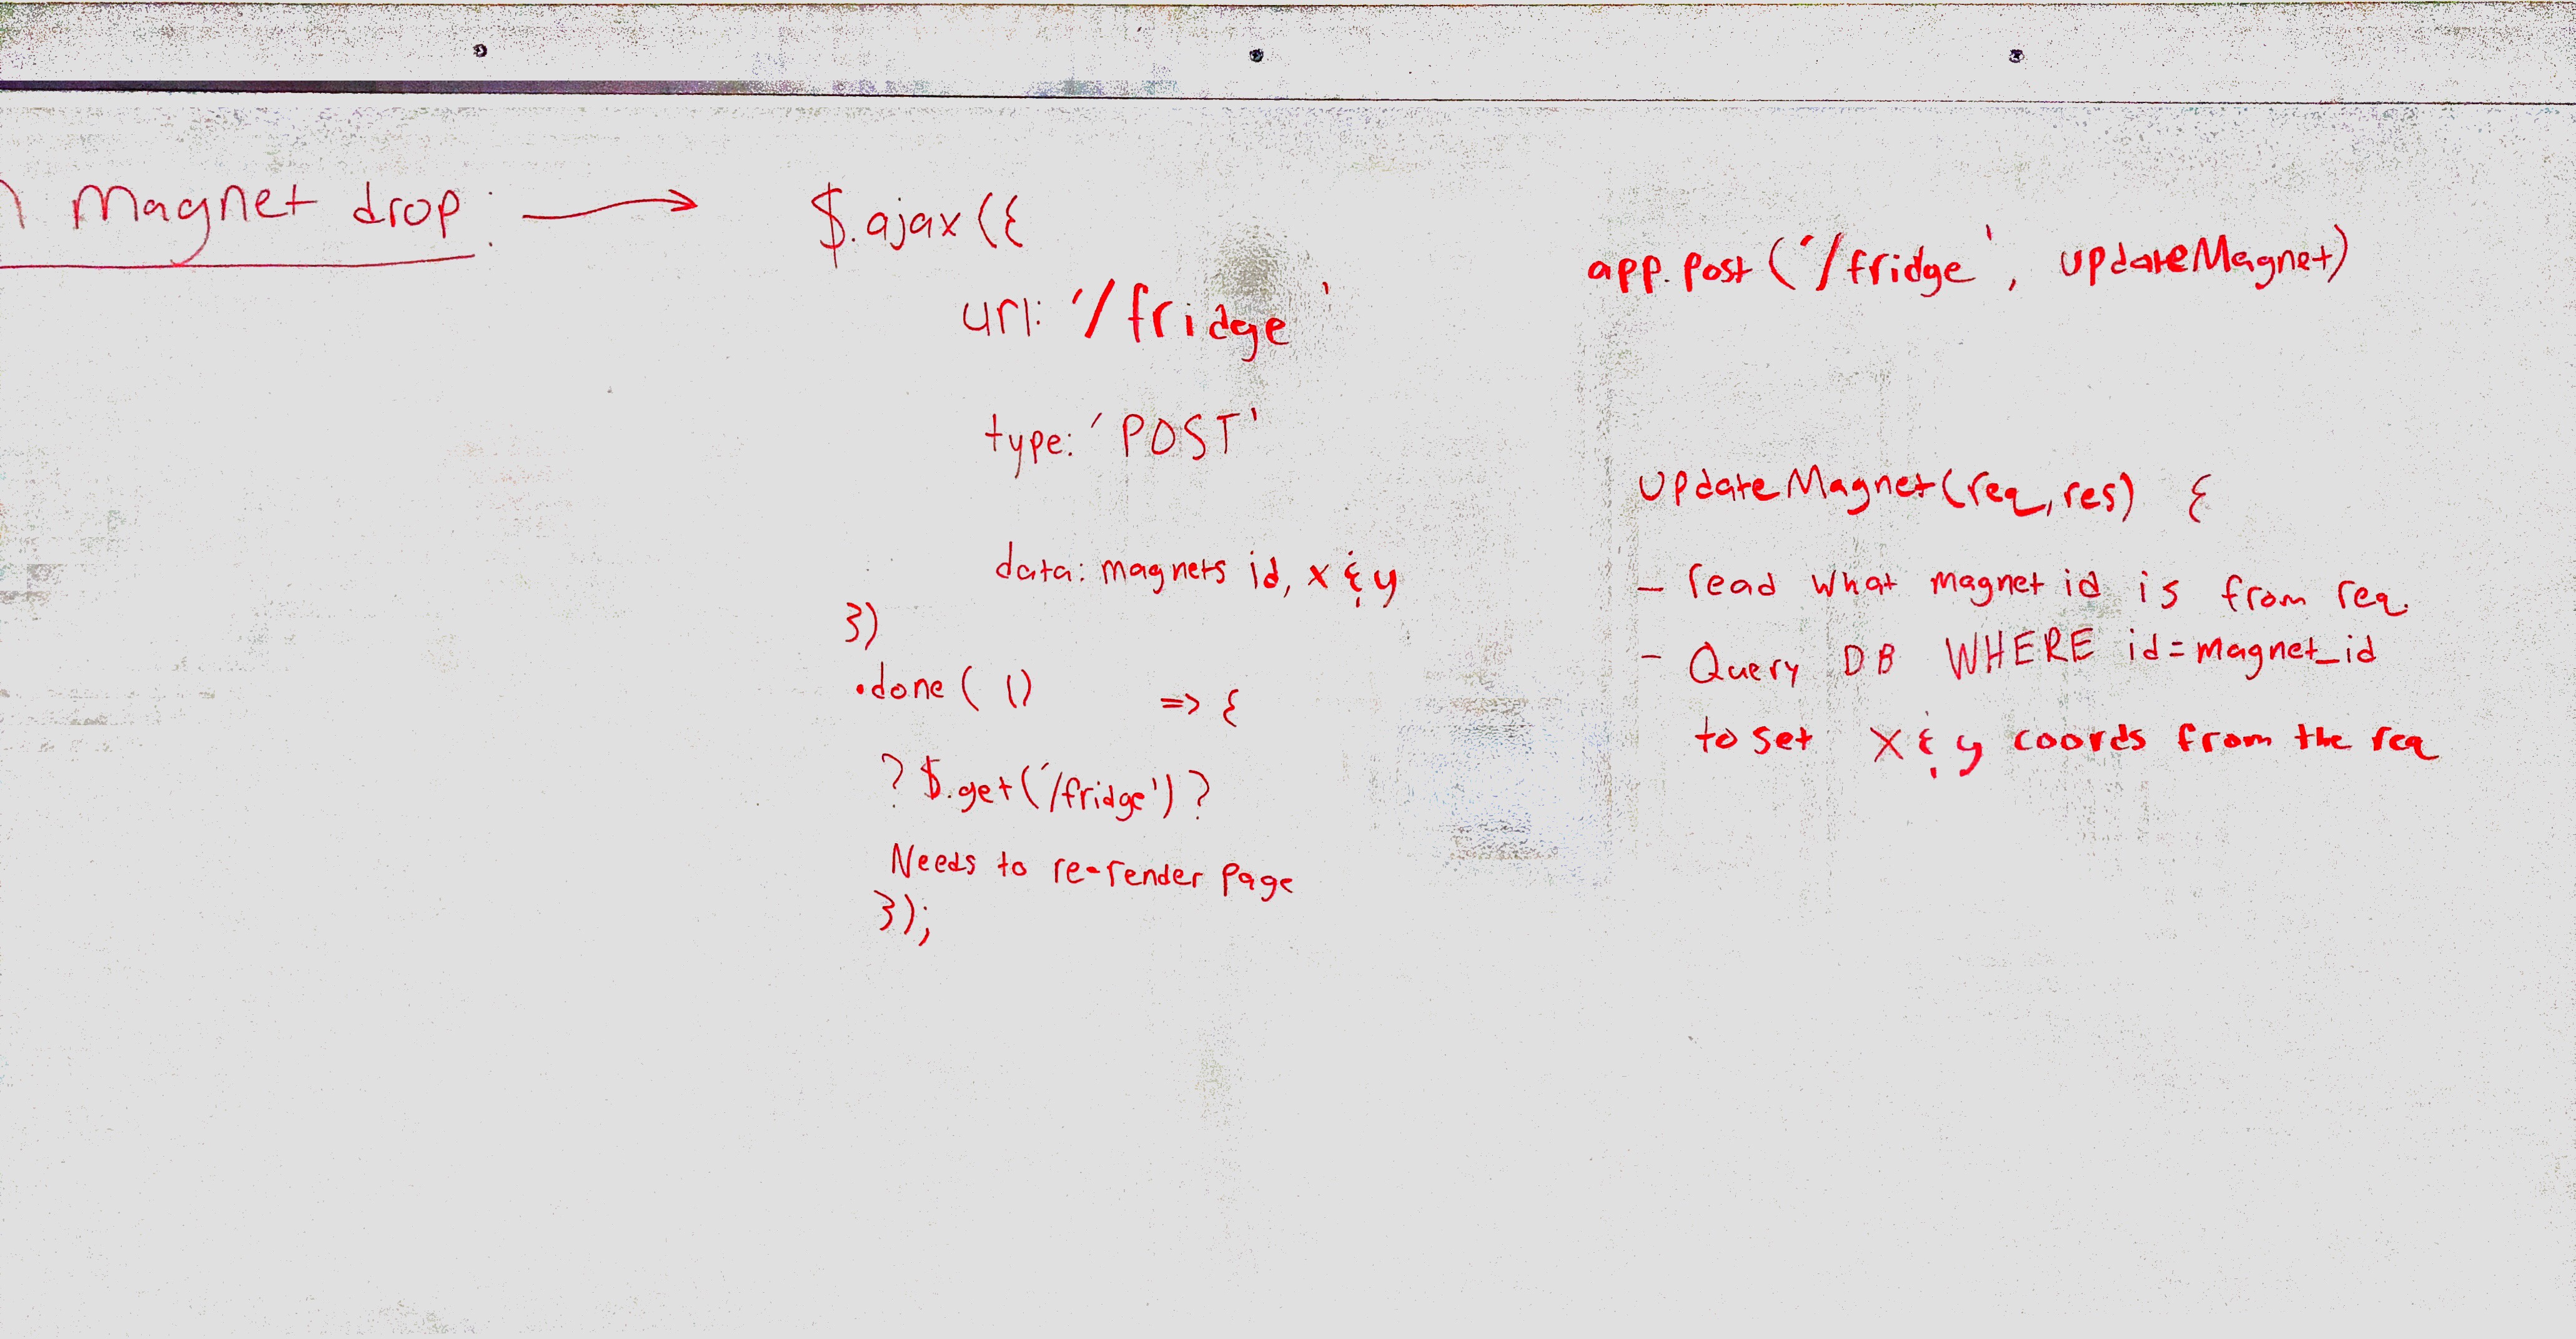 Magnet drop:
$.ajax({
url: '/fridge'
type: 'POST'
data: magnets id, x & y
})
.done( () => {
? $.get('/fridge') ?
Needs to re-render page
});
app.post('/fridge', updateMagnet)
updateMagnet(req, res) {
- read what magnet id is from req.
- Query DB WHERE id = magnet_id
to set x & y coords from the req